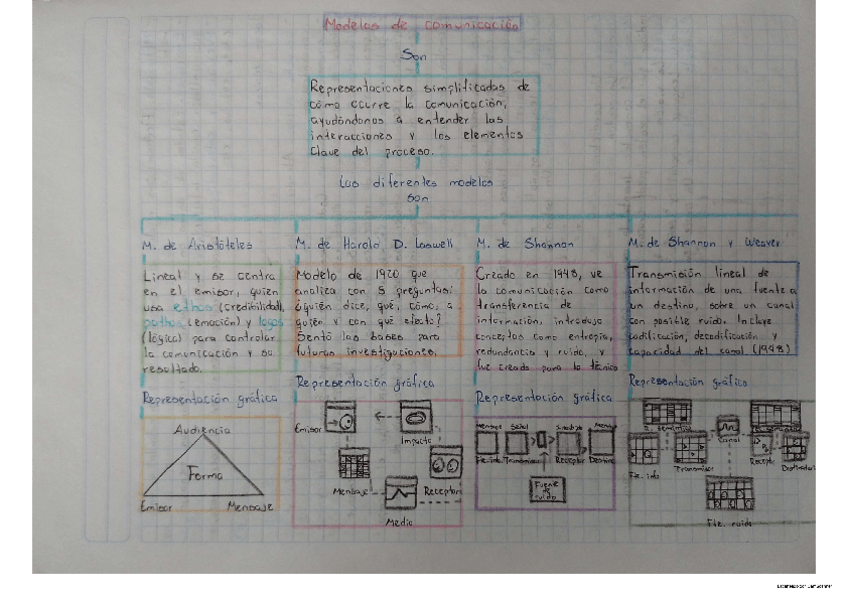 Modelos de comunicación
Son
Representaciones simplificadas de
cómo ocurre la comunicación,
ayudándonos a entender las
interacciones y los elementos
clave del proceso.
Los diferentes modelos
son
M. de Aristóteles
Lineal y se centra
en el emisor, quien
usa ethos (credibilidad),
pathos (emoción) y logos
(lógica) para controlar
la comunicación y su
resultado.
Representación gráfica
Audiencia
Forma
Emisor
Mensaje
M. de Harold D. Laswell
Modelo de 1920 que
analiza con 5 preguntas:
¿quién dice, qué, cómo, a
quién y con qué efecto?
Sentó las bases para
futuras investigaciones.
Representación gráfica
Emisor
Impacto
Mensaje
Receptor
Medio
M. de Shannon
Creado en 1948, ve
la comunicación como
transferencia de
información, introdujo
conceptos como entropía,
redundancia y ruido, y
fue creado para lo técnico
Representación gráfica
Mensaje Señal
Fte. info Transmisor Receptor Destino
Fuente
de
ruido
M. de Shannon y Weaver
Transmisión lineal de
información de una fuente a
un destino, sobre un canal
con posible ruido. Incluye
codificación, decodificación y
capacidad del canal (1948)
Representación gráfica
Canal
Fte. info
Transmisor
Receptor
Fte. ruido